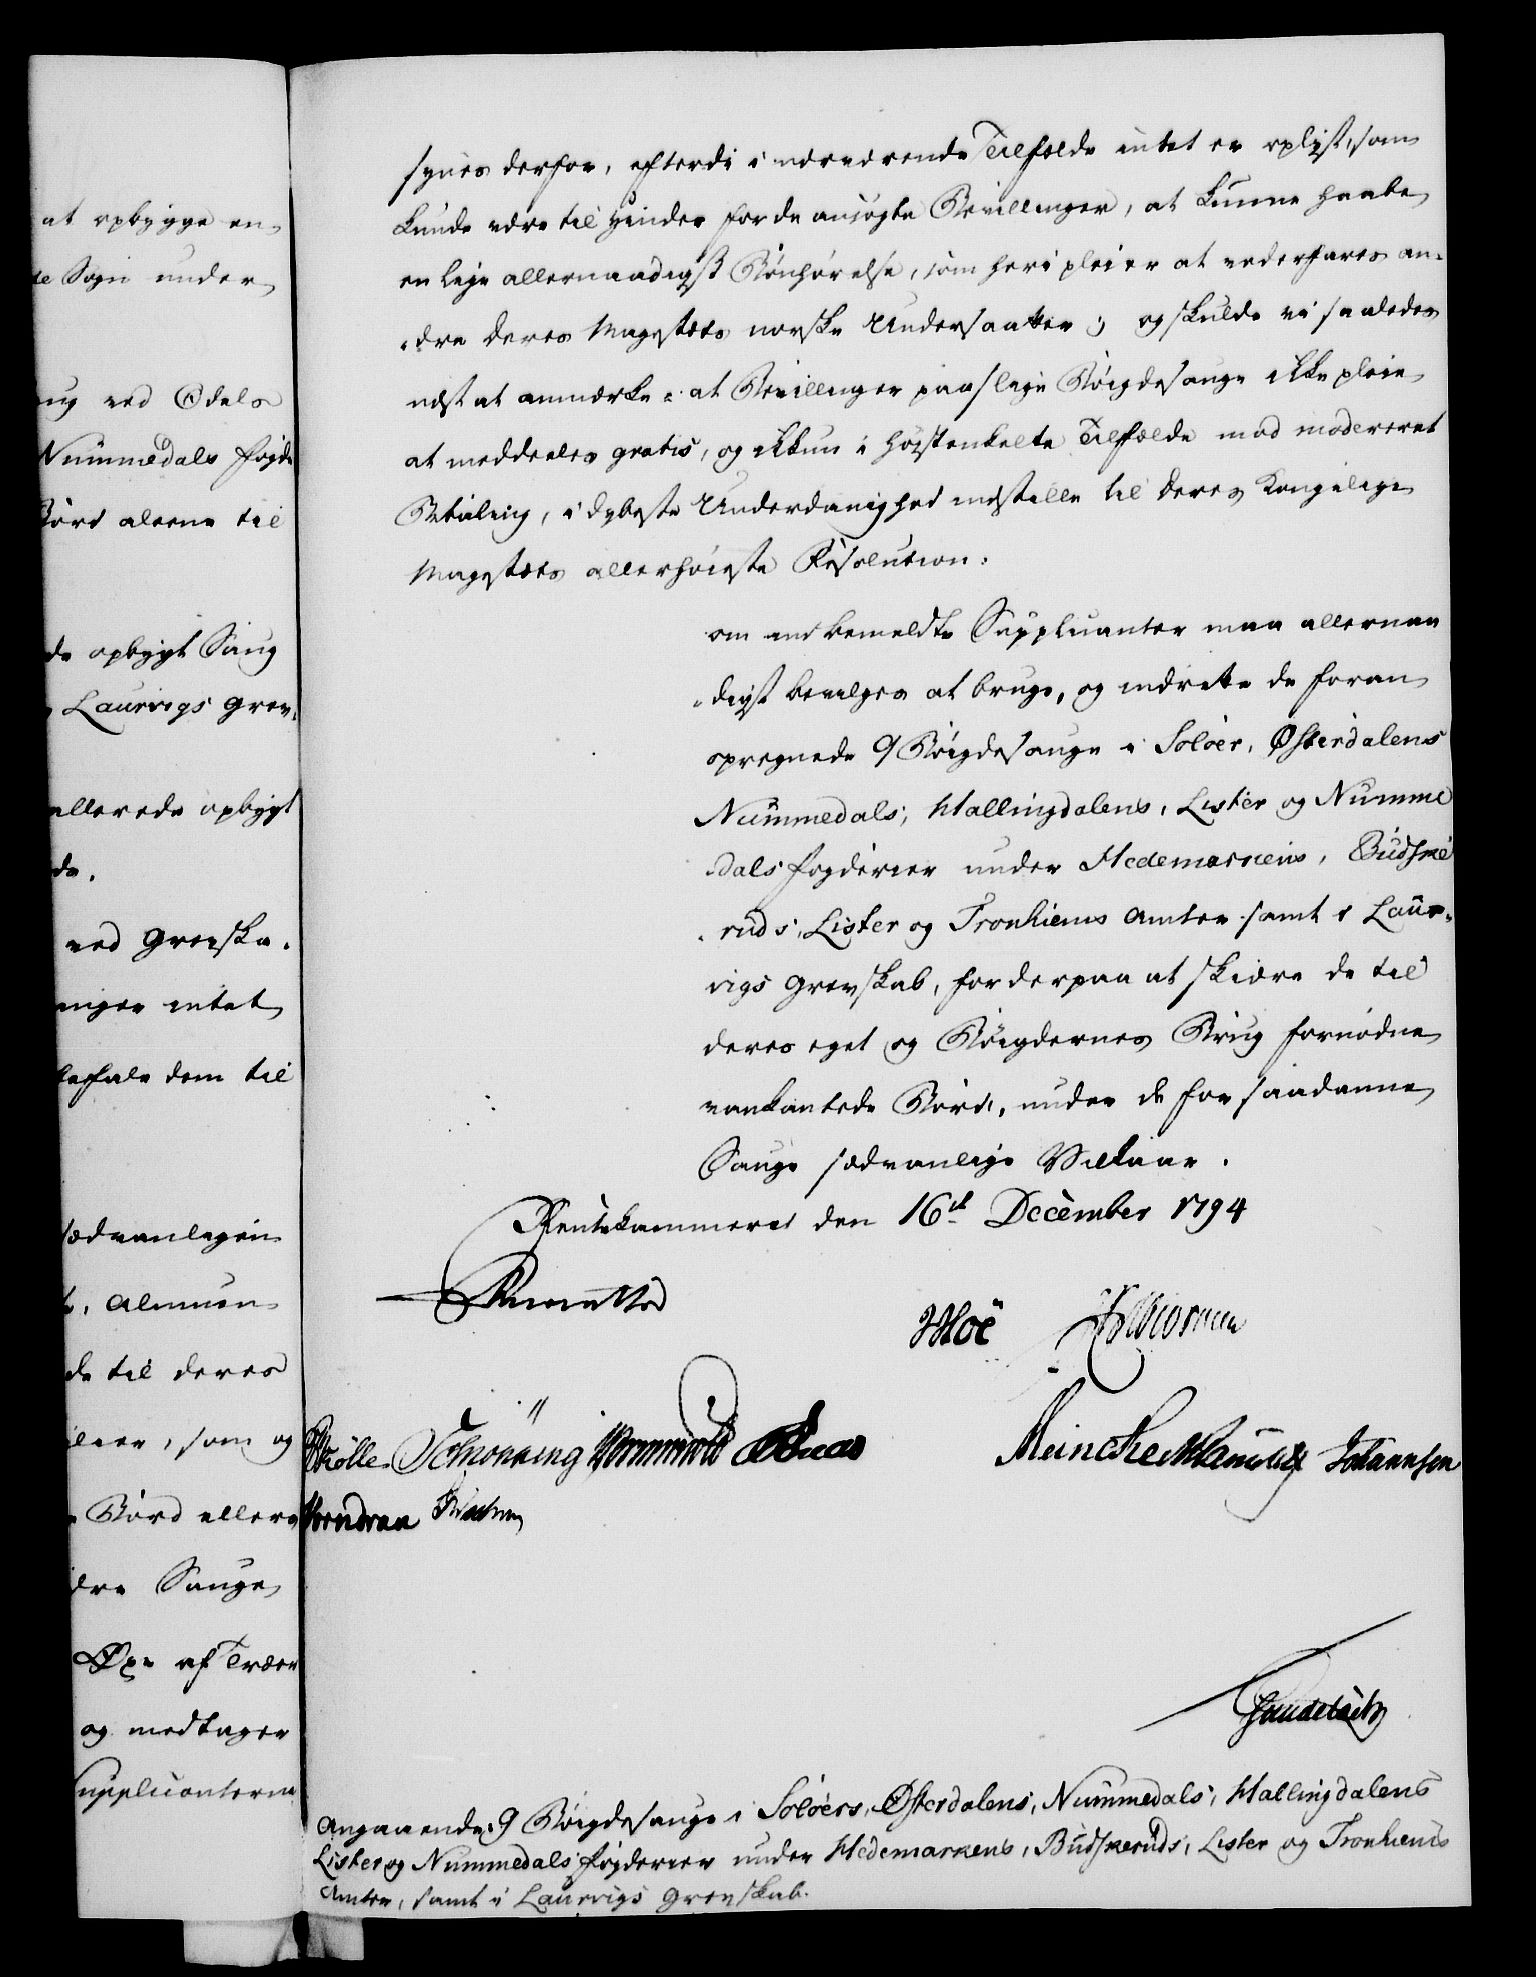 at opbygge en-
te Sogn under
ug ved Odels
Nummedals Fogde
Bord aleene til
de opbygt Saug
Laurvigs Grev-
allerede opbygt
de.
ved Grevska-
inger intet
befale dem til
sædvanlige
Almuen
de til deres
som og
Bord allere
dre Sauge
Øxe af Træer
og medtager
Supplicanterne
synes derfor, efterdi i nærværende Tilfælde intet er oplyst, som
kunde være til Hinder for de ansøgte Bevillinger, at kunne haabe
en lige allernaadigst Bønhørelse, som heri pleier at vederfares an-
dre Deres Majestæts norske Undersaatter; og skulde vi saaledes
næst at anmærke: at Bevillinger paa slige Bøigdesauge ikke pleie
at meddeles gratis, og ikkun i høistenkelte Tilfælde mod modereret
Betaling, i dybeste Underdanighed indstille til Deres Kongelige
Majestæts allerhøieste Resolution:
om anbemeldte Supplicanter maa allernaa-
digst bevilges at bruge, og indrette de foran
opregnede 9 Bøigdesauge i Soløer, Østerdalens
Nummedals, Hallingdalens, Lister og Numme
dals Fogderier under Hedemarkens, Budske
ruds, Lister og Tronhiems Amter samt i Laur-
vigs Grevskab, for derpaa at skiære de til
deres eget og Bøigdernes Brug fornødne
vankantede Bord, under de for saadanne
Sauge sædvanlige Vilkaar.
Rentekammeret den 16de December 1794
Moe
Schönning
Meincke
Johannsen
Angaaende 9 Bøigdesauge i Soløers, Østerdalens, Nummedals, Hallingdalens
Lister og Nummedals Fogderier under Hedemarkens, Budskeruds, Lister og Tronhiems
Amter, samt i Laurvigs Grevskab.